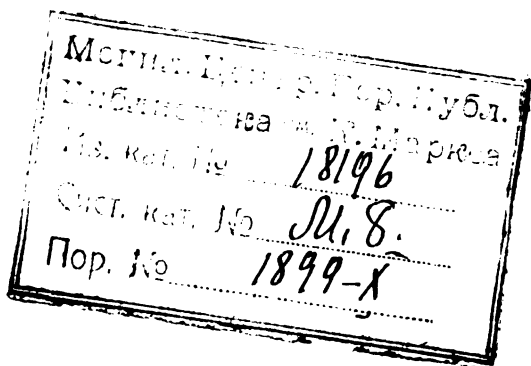 Могил. Центр. Гор. Публ.
Библиотека им. К. Маркса
Ин. кат. № 18196
Сист. кат. № М, 8.
Пор. № 1899-X